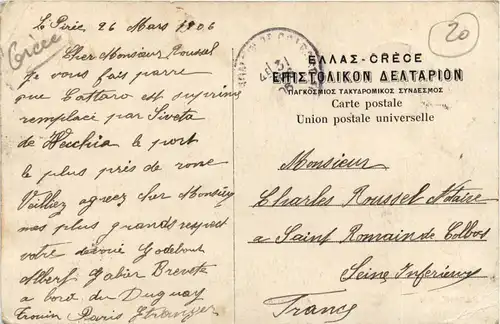 Grèce
Le Pirée, 26 Mars 1906
Cher Monsieur Roussel
Je vous fais parre
que Cattaro est suprime
remplacé par Siveta
de Vecchia le port
le plus près de rome
Veilliez agreez cher Monsieur
mes plus grands respect
votre devoué Godebout
Albert Gabier Breveté
a bord du Duguay
Trouin Paris Etranger
20
ΕΛΛΑΣ-GRÈCE
ΕΠΙΣΤΟΛΙΚΟΝ ΔΕΛΤΑΡΙΟΝ
ΠΑΓΚΟΣΜΙΟΣ ΤΑΧΥΔΡΟΜΙΚΟΣ ΣΥΝΔΕΣΜΟΣ
Carte postale
Union postale universelle
Monsieur
Charles Roussel Notaire
a Saint Romain de Colbosc
Seine Inferieure
France